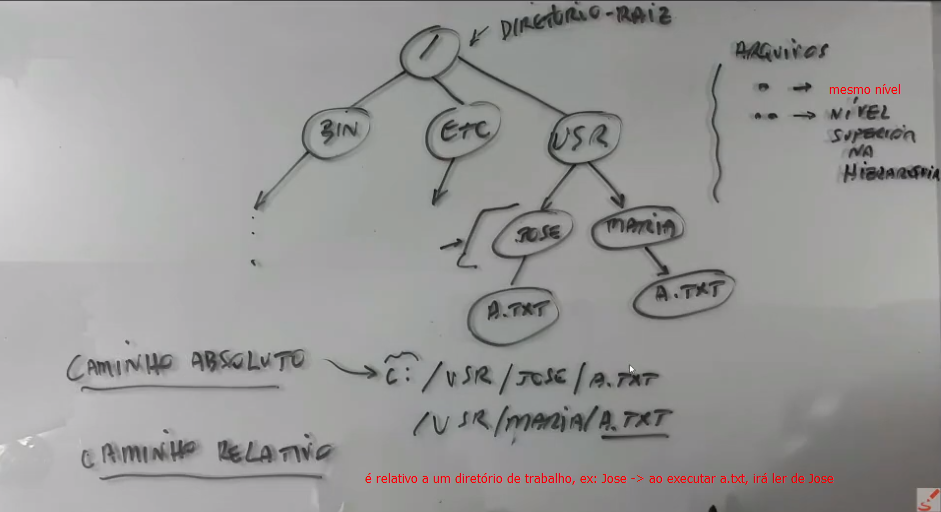 / DIRETÓRIO-RAIZ
BIN
ETC
USR
JOSE
MARIA
A.TXT
A.TXT
ARQUIVOS
. → mesmo nível
.. → NÍVEL
SUPERIOR
NA
HIERARQUIA
CAMINHO ABSOLUTO → C: /USR/JOSE/A.TXT
/USR/MARIA/A.TXT
CAMINHO RELATIVO
é relativo a um diretório de trabalho, ex: Jose -> ao executar a.txt, irá ler de Jose